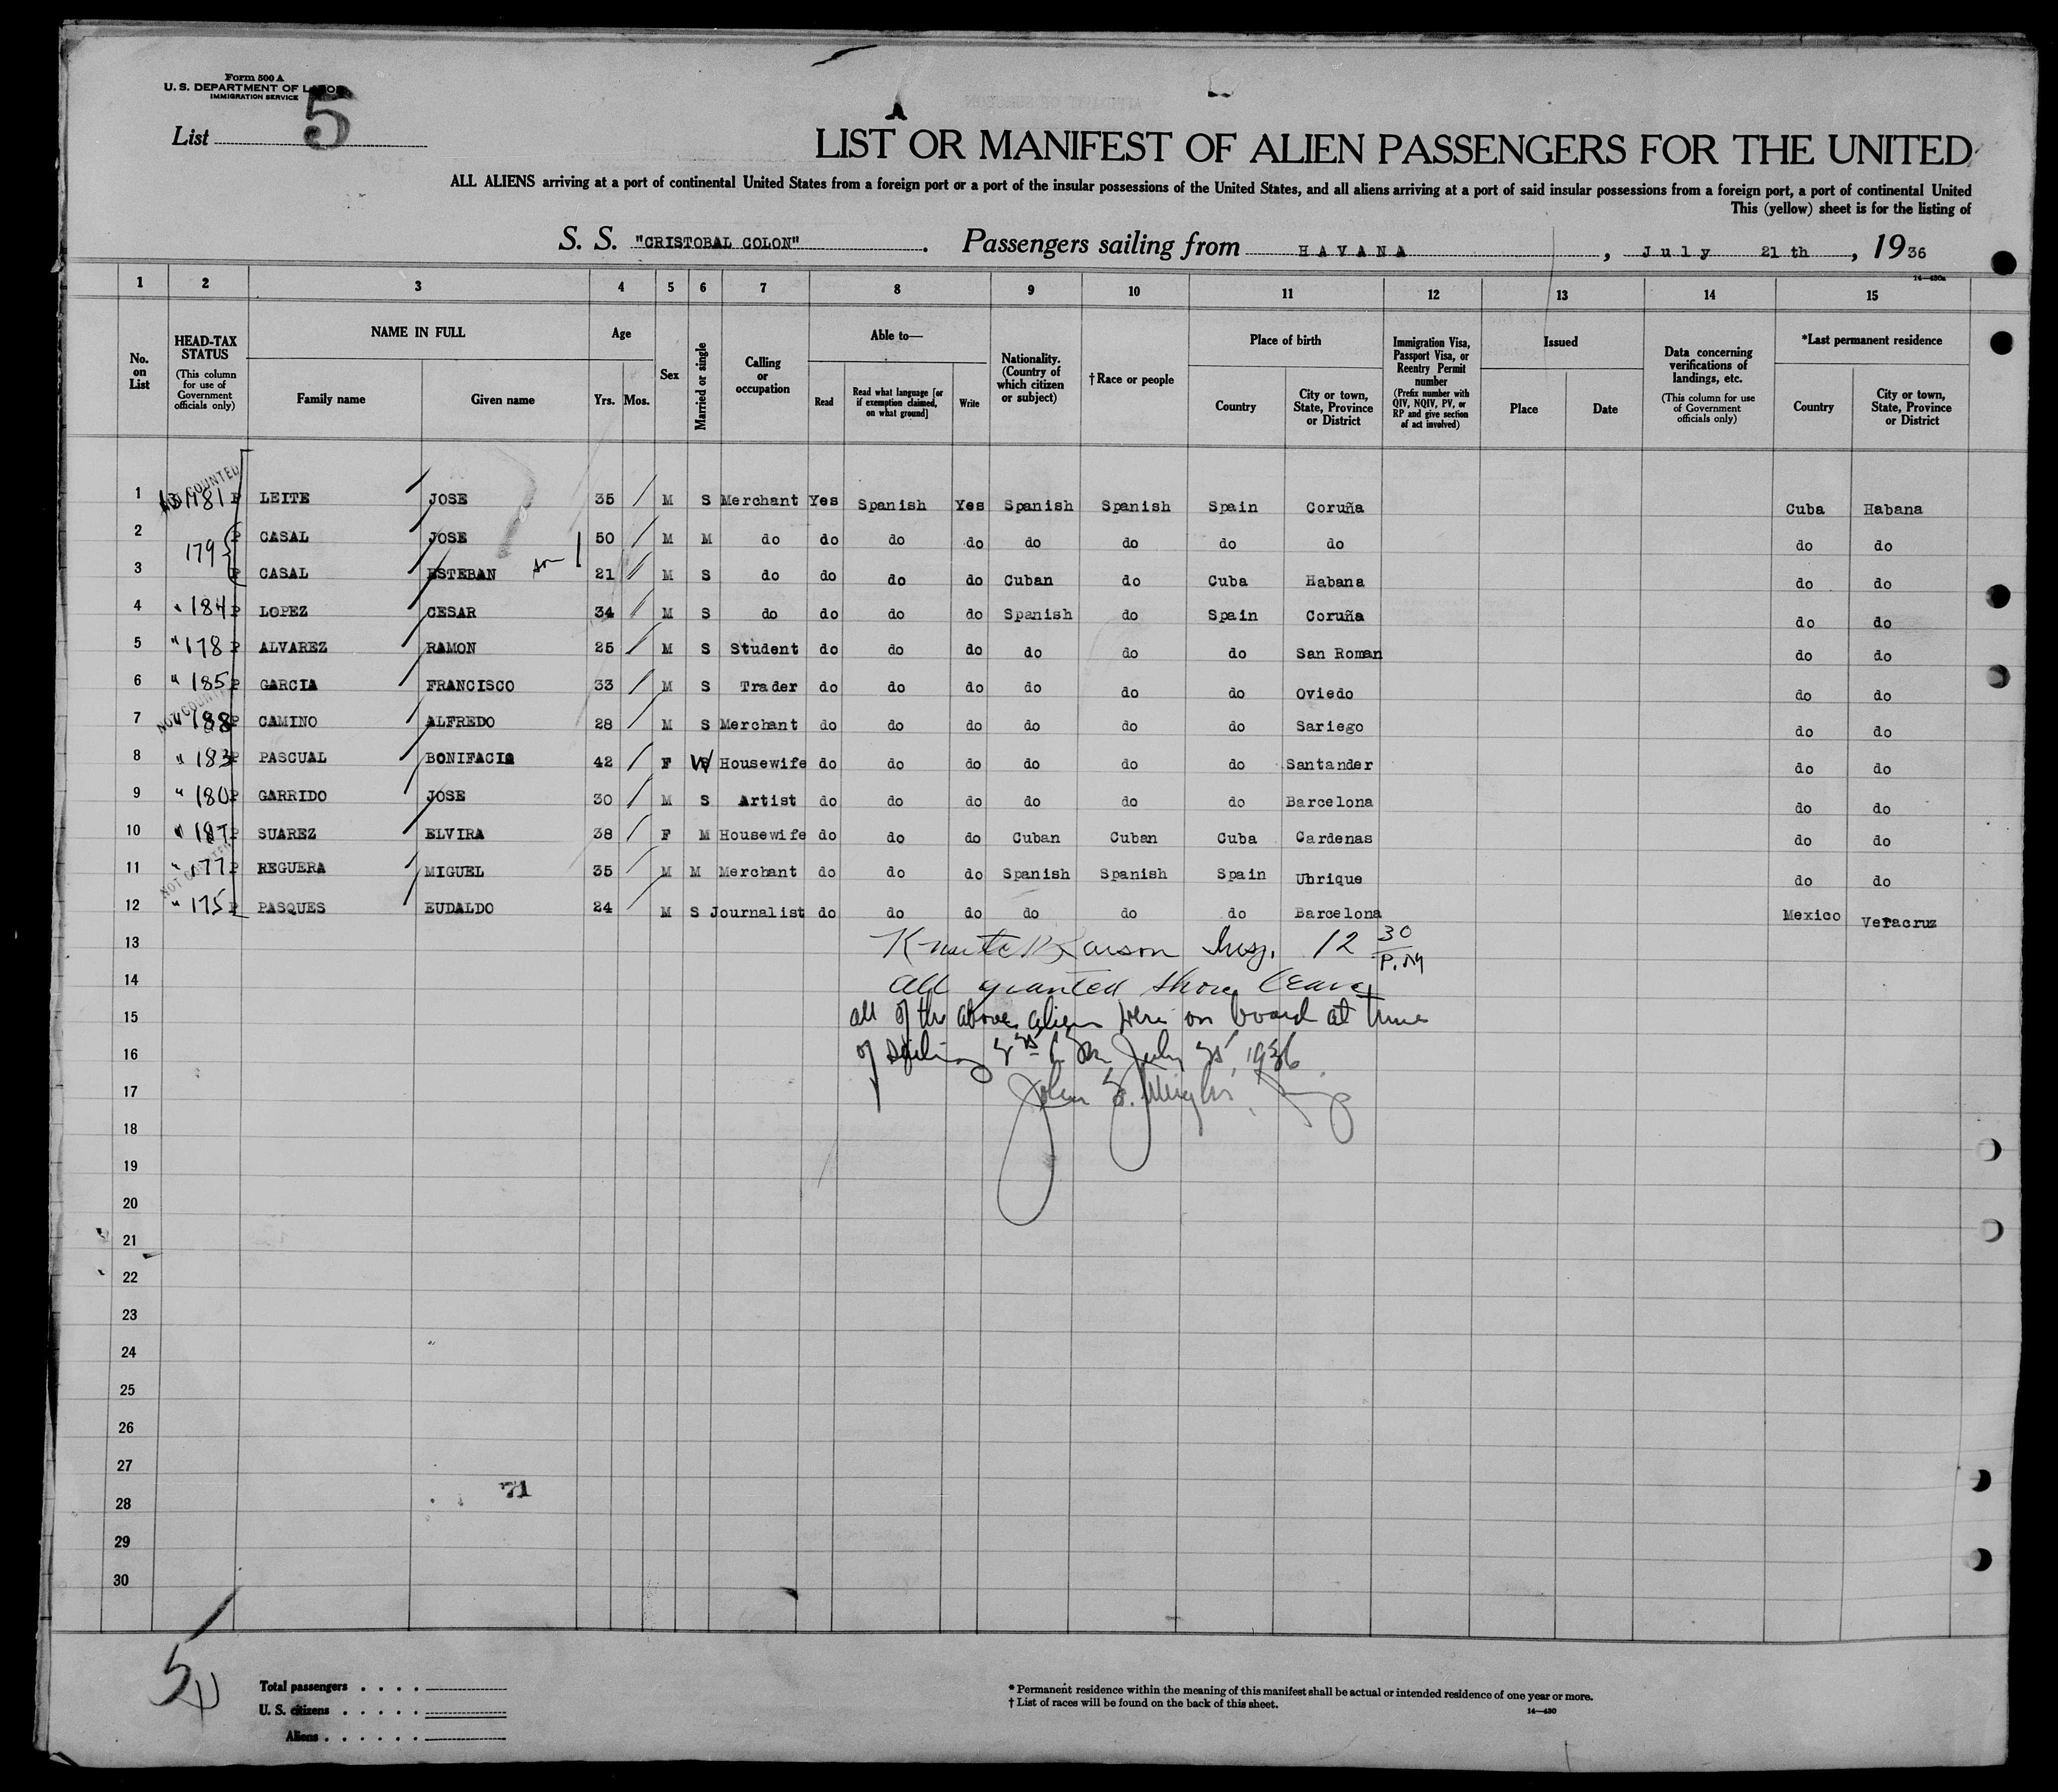 Form 500 A
U. S. DEPARTMENT OF LABOR
IMMIGRATION SERVICE
List 5
LIST OR MANIFEST OF ALIEN PASSENGERS FOR THE UNITED
ALL ALIENS arriving at a port of continental United States from a foreign port or a port of the insular possessions of the United States, and all aliens arriving at a port of said insular possessions from a foreign port, a port of continental United
This (yellow) sheet is for the listing of
S. S. "CRISTOBAL COLON". Passengers sailing from HAVANA, July 21 th, 1936
14—430a
1 2 3 4 5 6 7 8 9 10 11 12 13 14 15
No. on List
HEAD-TAX STATUS (This column for use of Government officials only)
NAME IN FULL Family name Given name
Age Yrs. Mos.
Sex
Married or single
Calling or occupation
Able to— Read Read what language [or if exemption claimed, on what ground] Write
Nationality. (Country of which citizen or subject)
†Race or people
Place of birth Country City or town, State, Province or District
Immigration Visa, Passport Visa, or Reentry Permit number (Prefix number with QIV, NQIV, PV, or RP and give section of act involved)
Issued Place Date
Data concerning verifications of landings, etc. (This column for use of Government officials only)
*Last permanent residence Country City or town, State, Province or District
NOT COUNTED
1 181 P LEITE JOSE 35 M S Merchant Yes Spanish Yes Spanish Spanish Spain Coruña Cuba Habana
2 P CASAL JOSE 50 M M do do do do do do do do do do
179
3 P CASAL ESTEBAN 21 M S do do do do Cuban do Cuba Habana do do
4 " 184 P LOPEZ CESAR 34 M S do do do do Spanish do Spain Coruña do do
5 " 178 P ALVAREZ RAMON 25 M S Student do do do do do do San Roman do do
6 " 185 P GARCIA FRANCISCO 33 M S Trader do do do do do do Oviedo do do
NOT COUNTED
7 " 188 P CAMINO ALFREDO 28 M S Merchant do do do do do do Sariego do do
8 " 183 P PASCUAL BONIFACIA 42 F W Housewife do do do do do do Santander do do
9 " 180 P GARRIDO JOSE 30 M S Artist do do do do do do Barcelona do do
10 " 187 P SUAREZ ELVIRA 38 F M Housewife do do do Cuban Cuban Cuba Cardenas do do
NOT COUNTED
11 " 177 P REGUERA MIGUEL 35 M M Merchant do do do Spanish Spanish Spain Ubrique do do
12 " 175 P PASQUES EUDALDO 24 M S Journalist do do do do do do Barcelona Mexico Veracruz
13 Knute Larson Insp. 12 30 P.M
14 all granted shore leave
15 all of the above aliens were on board at time
16 of sailing July 1936
17 John
18
19
20
21
22
23
24
25
26
27
71
28
29
30
5
Total passengers
U. S. citizens
Aliens
* Permanent residence within the meaning of this manifest shall be actual or intended residence of one year or more.
† List of races will be found on the back of this sheet.
14—430